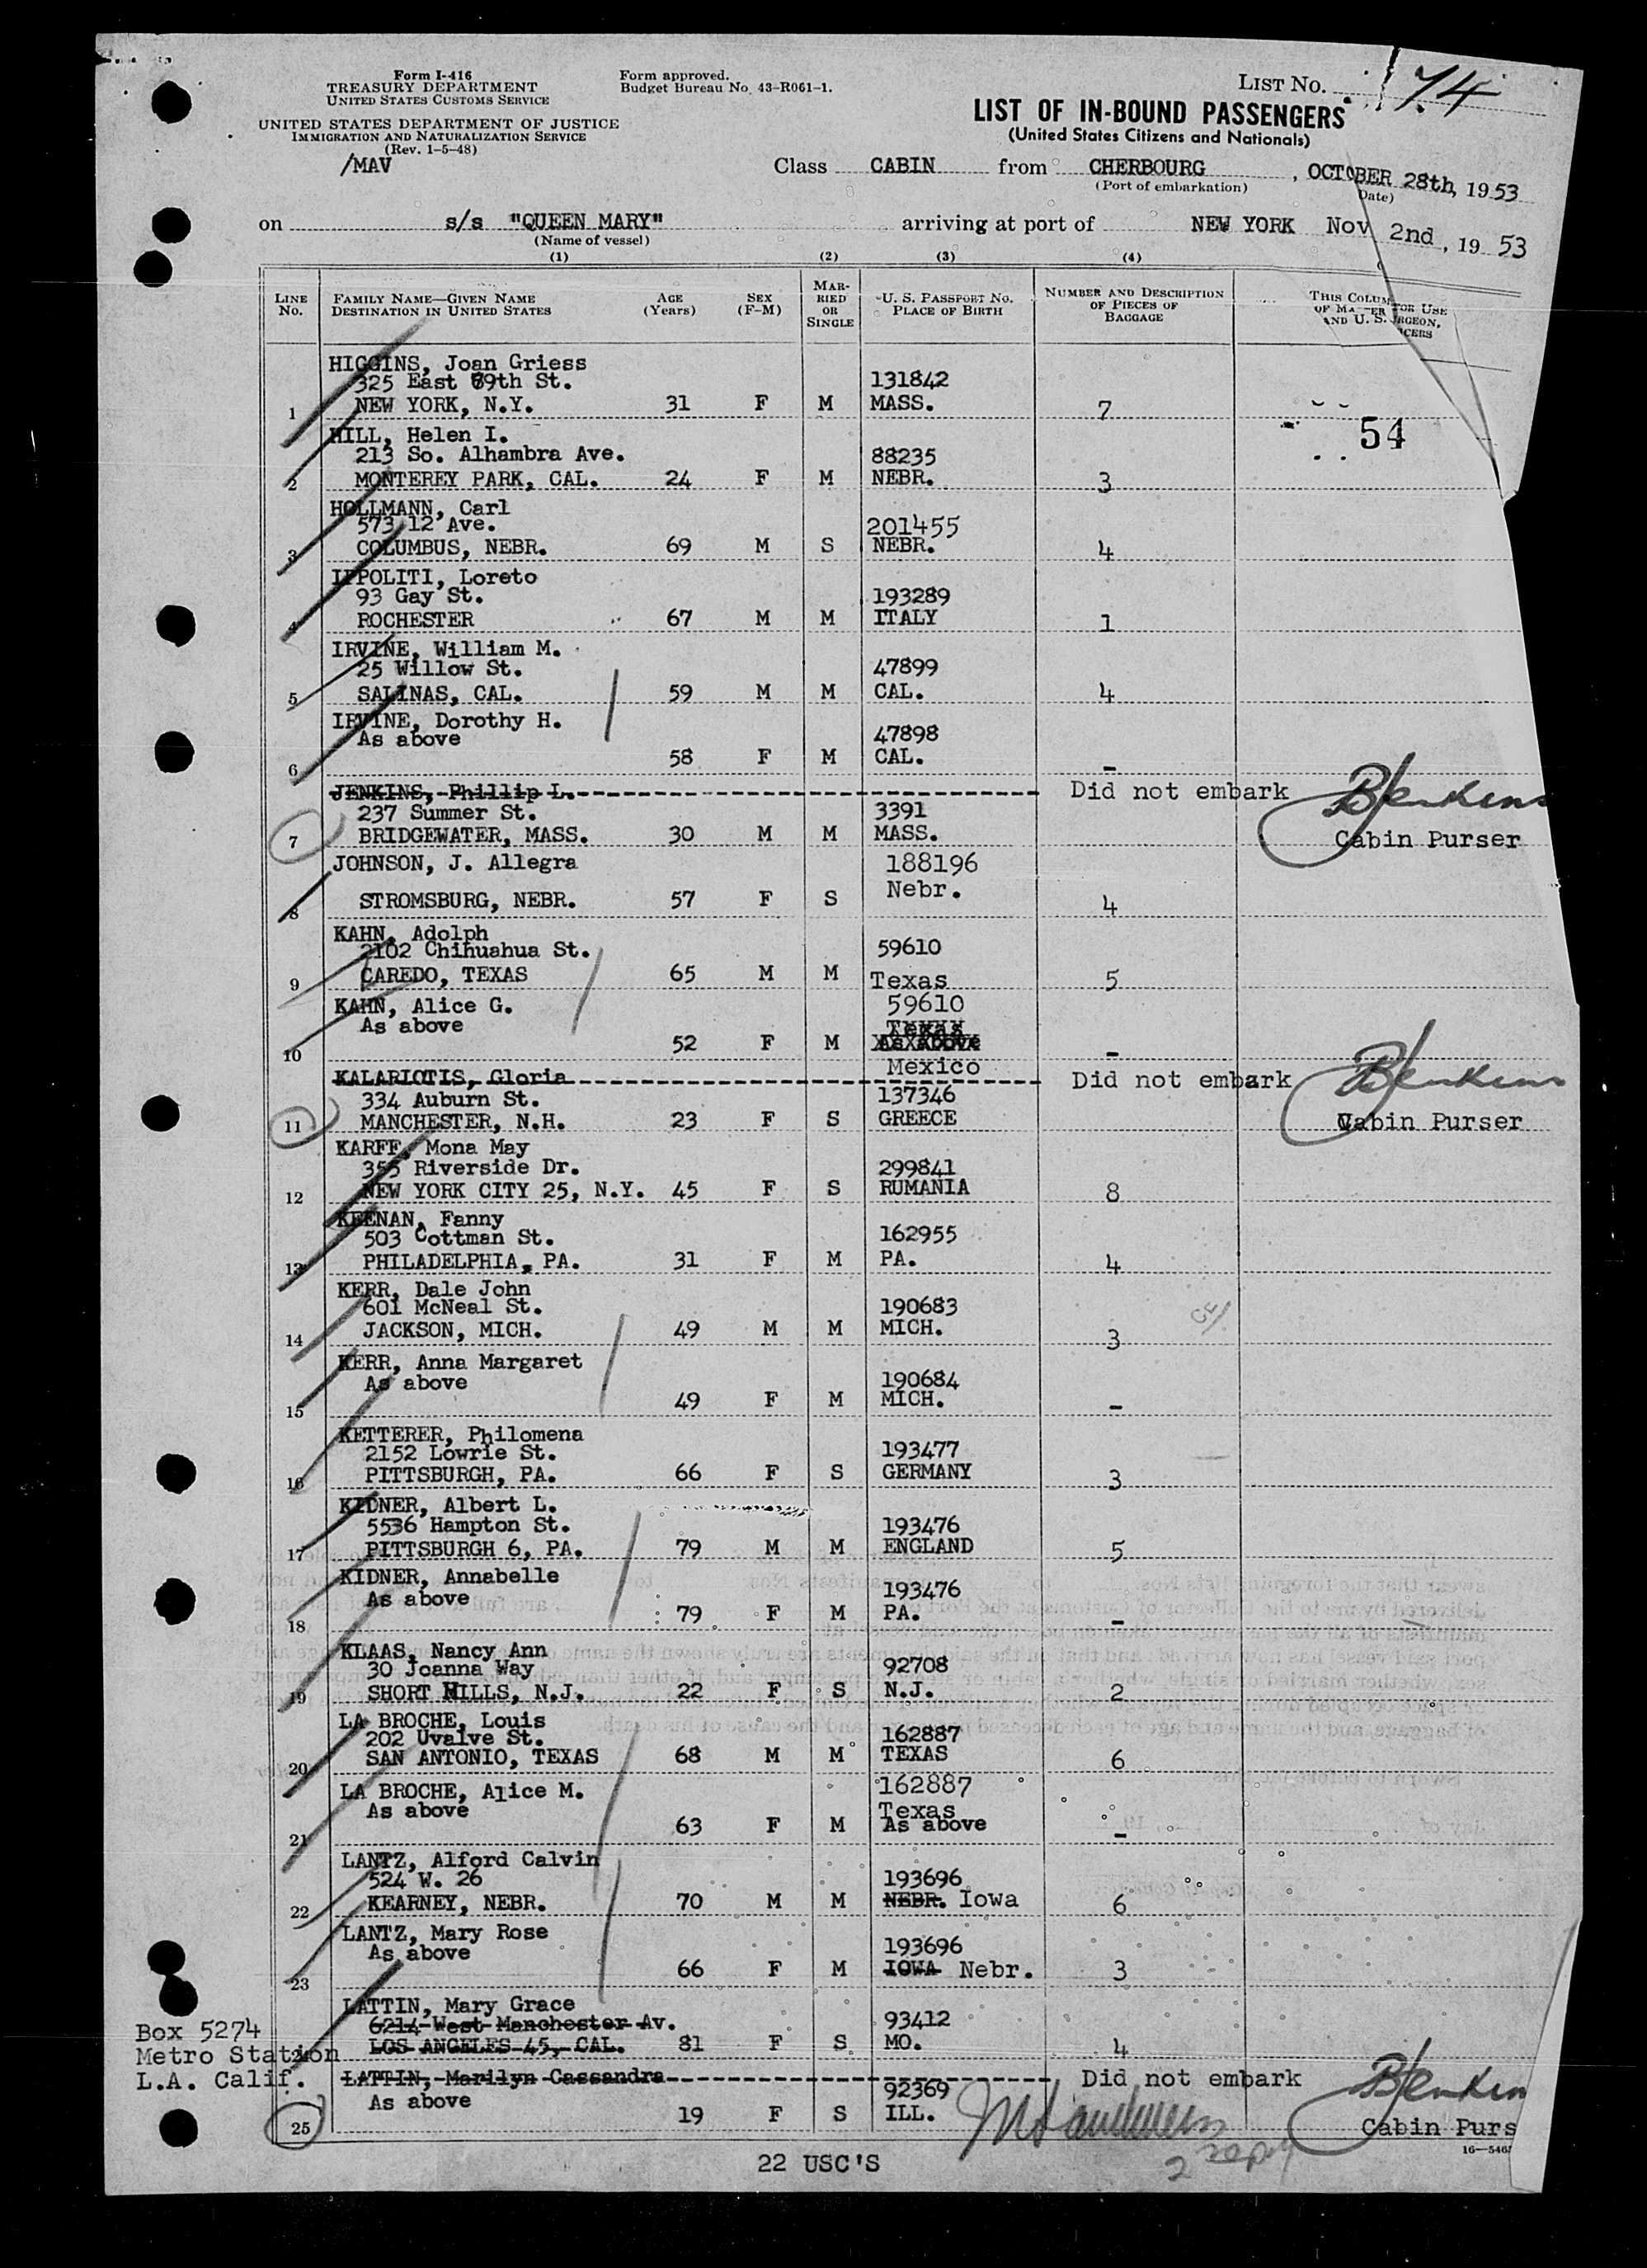 Form I-416
TREASURY DEPARTMENT
UNITED STATES CUSTOMS SERVICE
UNITED STATES DEPARTMENT OF JUSTICE
IMMIGRATION AND NATURALIZATION SERVICE
(Rev. 1-5-48)
/MAV
Form approved.
Budget Bureau No. 43-R061-1.
LIST NO. 74
LIST OF IN-BOUND PASSENGERS
(United States Citizens and Nationals)
Class CABIN from CHERBOURG, OCTOBER 28th, 1953
(Port of embarkation) Date)
on s/s "QUEEN MARY" arriving at port of NEW YORK Nov 2nd, 19 53
(Name of vessel)
(1) (2) (3) (4)
LINE No. FAMILY NAME—GIVEN NAME DESTINATION IN UNITED STATES AGE (Years) SEX (F-M) MARRIED OR SINGLE U. S. PASSPORT NO. PLACE OF BIRTH NUMBER AND DESCRIPTION OF PIECES OF BAGGAGE
HIGGINS, Joan Griess
325 East 69th St. 131842
1 NEW YORK, N.Y. 31 F M MASS. 7
54
HILL, Helen I.
213 So. Alhambra Ave. 88235
2 MONTEREY PARK, CAL. 24 F M NEBR. 3
HOLLMANN, Carl
573 12 Ave. 201455
3 COLUMBUS, NEBR. 69 M S NEBR. 4
IPPOLITI, Loreto
93 Gay St. 193289
4 ROCHESTER 67 M M ITALY 1
IRVINE, William M.
25 Willow St. 47899
5 SALINAS, CAL. 59 M M CAL. 4
IRVINE, Dorothy H.
As above 47898
6 58 F M CAL. -
JENKINS, Phillip L. Did not embark BJenkins
237 Summer St. 3391
7 BRIDGEWATER, MASS. 30 M M MASS. Cabin Purser
JOHNSON, J. Allegra 188196
8 STROMSBURG, NEBR. 57 F S Nebr. 4
KAHN, Adolph
2102 Chihuahua St. 59610
9 LAREDO, TEXAS 65 M M Texas 5
KAHN, Alice G. 59610
As above Texas
10 52 F M As Above -
Mexico
KALARIOTIS, Gloria Did not embark BJenkins
334 Auburn St. 137346
11 MANCHESTER, N.H. 23 F S GREECE Cabin Purser
KARFF, Mona May
355 Riverside Dr. 299841
12 NEW YORK CITY 25, N.Y. 45 F S RUMANIA 8
KEENAN, Fanny
503 Cottman St. 162955
13 PHILADELPHIA, PA. 31 F M PA. 4
KERR, Dale John
601 McNeal St. 190683
14 JACKSON, MICH. 49 M M MICH. 3
KERR, Anna Margaret
As above 190684
15 49 F M MICH. -
KETTERER, Philomena
2152 Lowrie St. 193477
16 PITTSBURGH, PA. 66 F S GERMANY 3
KIDNER, Albert L.
5536 Hampton St. 193476
17 PITTSBURGH 6, PA. 79 M M ENGLAND 5
KIDNER, Annabelle
As above 193476
18 79 F M PA. -
KLAAS, Nancy Ann
30 Joanna Way 92708
19 SHORT HILLS, N.J. 22 F S N.J. 2
LA BROCHE, Louis
202 Uvalve St. 162887
20 SAN ANTONIO, TEXAS 68 M M TEXAS 6
LA BROCHE, Alice M. 162887
As above Texas
21 63 F M As above -
LANTZ, Alford Calvin
524 W. 26 193696
22 KEARNEY, NEBR. 70 M M NEBR. Iowa 6
LANTZ, Mary Rose
As above 193696
23 66 F M IOWA Nebr. 3
LATTIN, Mary Grace
6214 West Manchester Av. 93412
24 LOS ANGELES 45, CAL. 81 F S MO. 4
Box 5274
Metro Station
L.A. Calif.
LATTIN, Marilyn Cassandra Did not embark BJenkins
As above 92369
25 19 F S ILL. Cabin Purs
22 USC'S